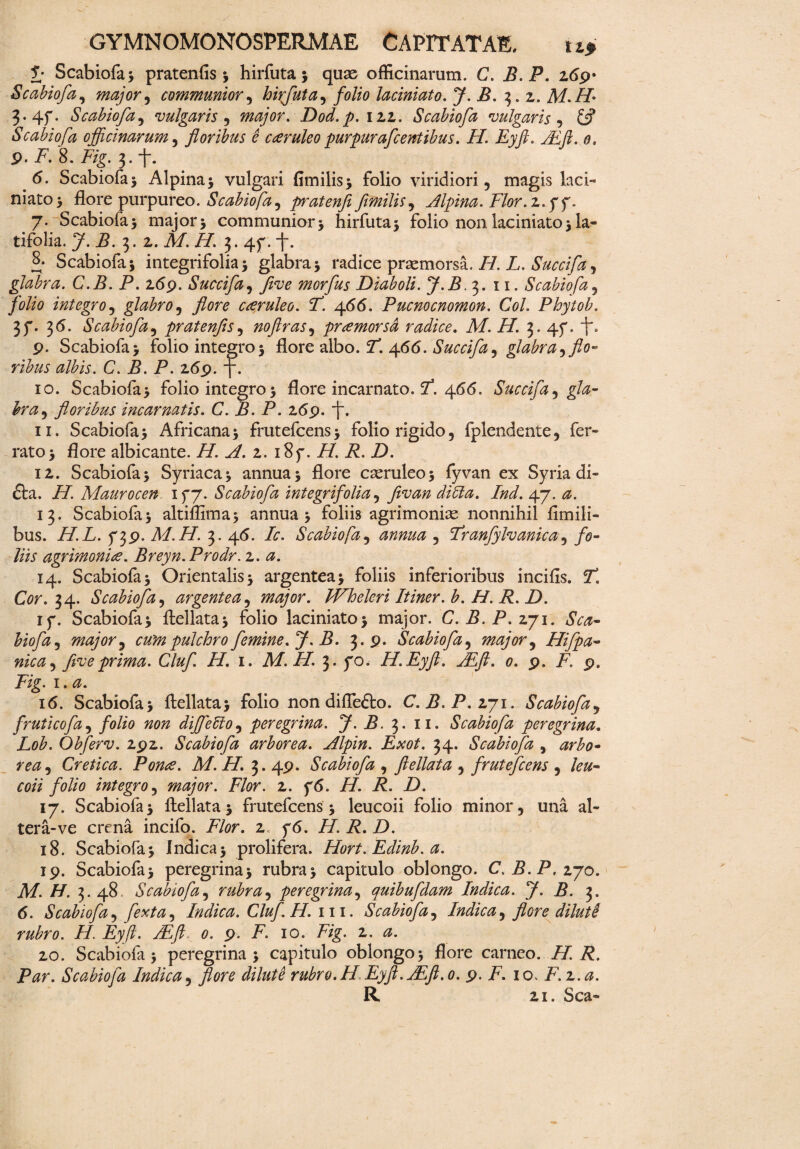 GYMNOMONOSPERMAE CAPITATAE. 129
5. Scabiosa; pratensis; hirsuta; quæ officinarum. C. B. P. 269.
Scabiosa, major, communior, hirsuta, folio laciniato. J. B. 3. 2. M. H.
3. 45. Scabiosa, vulgaris, major. Dod. p. 122. Scabiosa vulgaris, &
Scabiosa officinarum, floribus è cæruleo purpurascentibus. H. Eyst. Æst. o.
9. F. 8. Fig. 3. †.
6. Scabiosa; Alpina; vulgari similis; folio viridiori, magis laci-
niato; flore purpureo. Scabiosa, pratensi similis, Alpina. Flor. 2. 55.
7. Scabiosa; major; communior; hirsuta; folio non laciniato; la-
tifolia. J. B. 3. 2. M. H. 3. 45. †.
8. Scabiosa; integrifolia; glabra; radice præmorsâ. H. L. Succisa,
glabra. C. B. P. 269. Succisa, sive morsus Diaboli. J. B. 3. 11. Scabiosa,
folio integro, glabro, flore cæruleo. T. 466. Pucnocnomon. Col. Phytob.
35. 36. Scabiosa, pratensis, nostras, præmorsâ radice. M. H. 3. 45. †.
9. Scabiosa; folio integro; flore albo. T. 466. Succisa, glabra, flo-
ribus albis. C. B. P. 269. †.
10. Scabiosa; folio integro; flore incarnato. T. 466. Succisa, gla-
bra, floribus incarnatis. C. B. P. 269. †.
11. Scabiosa; Africana; frutescens; folio rigido, splendente, ser-
rato; flore albicante. H. A. 2. 185. H. R. D.
12. Scabiosa; Syriaca; annua; flore cæruleo; syvan ex Syria di-
cta. H. Maurocen 157. Scabiosa integrifolia, sivan dicta. Ind. 47. a.
13. Scabiosa; altissima; annua; foliis agrimoniæ nonnihil simili-
bus. H. L. 539. M. H. 3. 46. Ic. Scabiosa, annua, Transylvanica, fo-
liis agrimoniæ. Breyn. Prodr. 2. a.
14. Scabiosa; Orientalis; argentea; foliis inferioribus incisis. T.
Cor. 34. Scabiosa, argentea, major. Wheleri Itiner. b. H. R. D.
15. Scabiosa; stellata; folio laciniato; major. C. B. P. 271. Sca-
biosa, major, cum pulchro semine. J. B. 3. 9. Scabiosa, major, Hispa-
nica, sive prima. Clus. H. 1. M. H. 3. 50. H. Eyst. Æst. o. 9. F. 9.
Fig. 1. a.
16. Scabiosa; stellata; folio non dissecto. C. B. P. 271. Scabiosa,
fruticosa, folio non dissecto, peregrina. J. B. 3. 11. Scabiosa peregrina.
Lob. Observ. 292. Scabiosa arborea. Alpin. Exot. 34. Scabiosa, arbo-
rea, Cretica. Ponæ. M. H. 3. 49. Scabiosa, stellata, frutescens, leu-
coii folio integro, major. Flor. 2. 56. H. R. D.
17. Scabiosa; stellata; frutescens; leucoii folio minor, unâ al-
terâ-ve crenâ inciso. Flor. 2. 56. H. R. D.
18. Scabiosa; Indica; prolifera. Hort. Edinb. a.
19. Scabiosa; peregrina; rubra; capitulo oblongo. C. B. P. 270.
M. H. 3. 48. Scabiosa, rubra, peregrina, quibusdam Indica. J. B. 3.
6. Scabiosa, sexta, Indica. Clus. H. 111. Scabiosa, Indica, flore dilutè
rubro. H. Eyst. Æst. o. 9. F. 10. Fig. 2. a.
20. Scabiosa; peregrina; capitulo oblongo; flore carneo. H. R.
Par. Scabiosa Indica, flore dilutè rubro. H. Eyst. Æst. o. 9. F. 10. F. 2. a.
R 21. Sca-